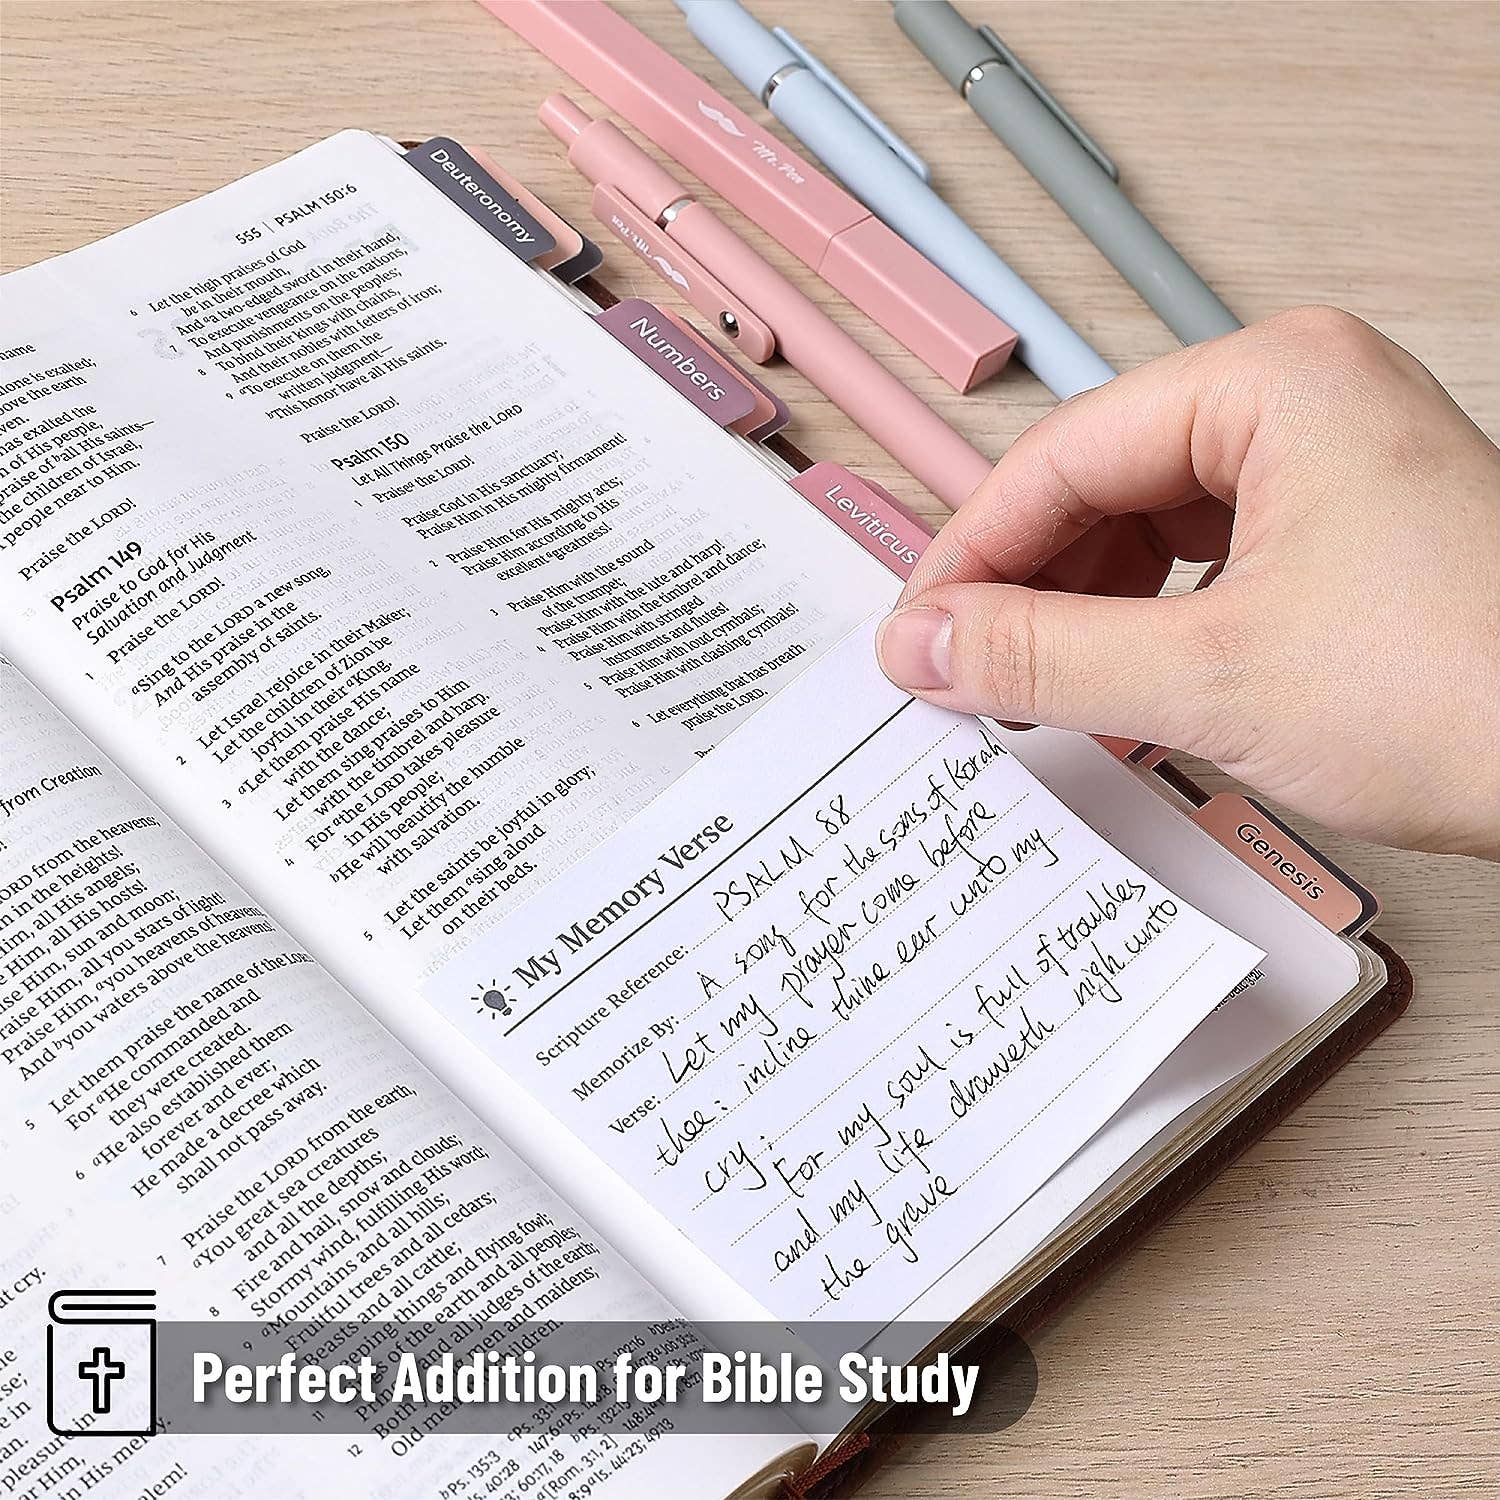 555 | PSALM 150:6
6 Let the high praises of God
be in their mouth,
And a two-edged sword in their hand,
7 To execute vengeance on the nations,
And punishments on the peoples;
8 To bind their kings with chains,
And their nobles with fetters of iron;
9 a To execute on them the
written judgment—
b This honor have all His saints.
Praise the LORD!
Psalm 150
Let All Things Praise the LORD
1 Praise a the LORD!
Praise God in His sanctuary;
Praise Him in His mighty firmament!
2 Praise Him for His mighty acts;
Praise Him according to His
excellent a greatness!
3 Praise Him with the sound
of the trumpet;
Praise Him with the lute and harp!
4 Praise Him with the timbrel and dance;
Praise Him with stringed
instruments and flutes!
5 Praise Him with loud cymbals;
Praise Him with clashing cymbals!
6 Let everything that has breath
praise the LORD.
name
alone is exalted;
above the earth
has exalted the
of His people,
praise of b all His saints—
the children of Israel,
people near to Him.
Praise the LORD!
Psalm 149
Praise to God for His
Salvation and Judgment
1 Praise the LORD!
a Sing to the LORD a new song,
And His praise in the
assembly of saints.
2 Let Israel rejoice in their Maker;
Let the children of Zion be
joyful in their a King.
3 a Let them praise His name
with the dance;
Let them sing praises to Him
with the timbrel and harp.
4 For a the LORD takes pleasure
in His people;
b He will beautify the humble
with salvation.
5 Let the saints be joyful in glory;
Let them a sing aloud
on their beds.
from Creation
LORD from the heavens;
in the heights!
Him, all His angels;
Him, all His hosts!
Him, sun and moon;
Him, all you stars of light!
Him, a you heavens of heavens,
And b you waters above the heavens!
5 Let them praise the name of the LORD,
For a He commanded and
they were created.
6 a He also established them
forever and ever;
He made a decree which
shall not pass away.
7 Praise the LORD from the earth,
a You great sea creatures
and all the depths;
8 Fire and hail, snow and clouds;
Stormy wind, fulfilling His word;
9 a Mountains and all hills;
Fruitful trees and all cedars;
Beasts and all cattle;
things and flying fowl;
of the earth and all peoples;
and all judges of the earth;
12 Both men and maidens;
Old men children.
Deuteronomy
Numbers
Leviticus
Genesis
Mr. Pen
Mr. Pen
My Memory Verse
Scripture Reference: PSALM 88
Memorize By: A song for the sons of Korah
Verse: Let my prayer come before
thee: incline thine ear unto my
cry;
For my soul is full of troubles
and my life draweth nigh unto
the grave
Perfect Addition for Bible Study